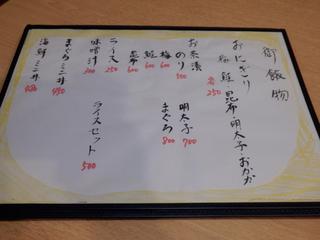 御飯物
おにぎり
梅・鮭・昆布・明太子・おかか
各250
お茶漬
のり 500
梅 600
鮭 600
昆布 600
明太子 700
まぐろ 800
ライス 250
味噌汁 200
ライスセット 500
まぐろミニ丼 950
海鮮ミニ丼 950